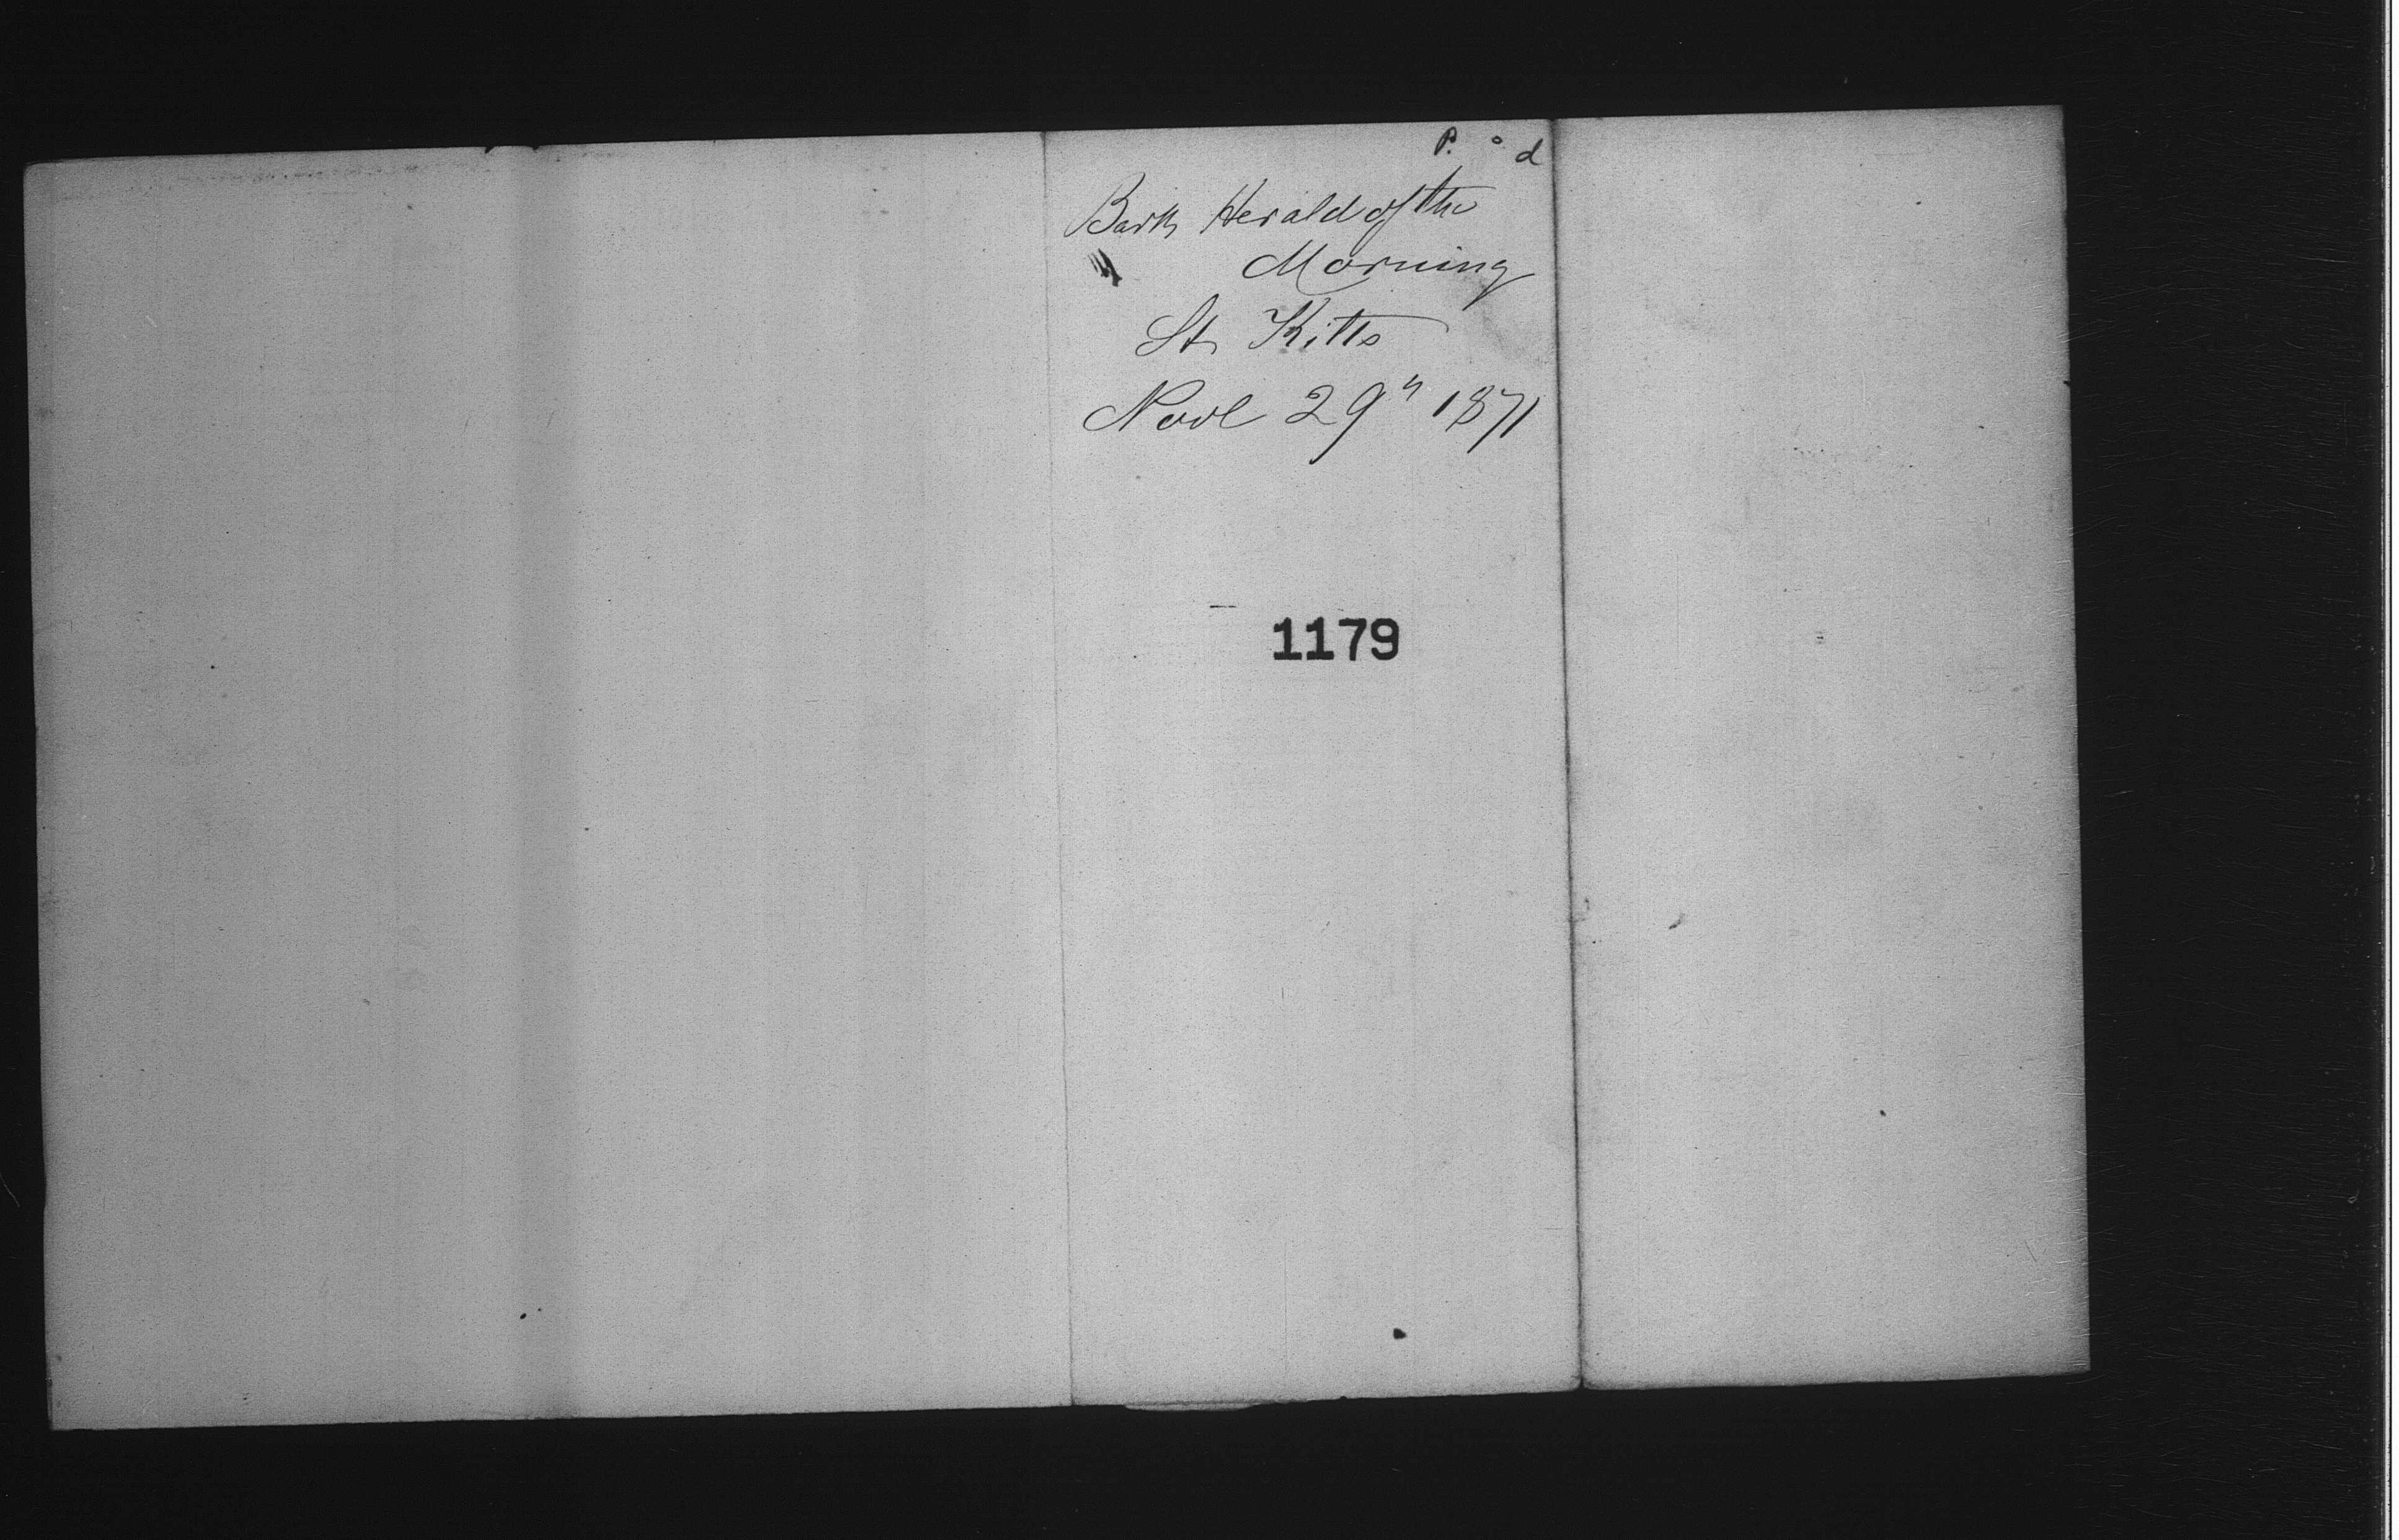 P. o d
Bark Herald of the
Morning
St Kitts
Novl 29" 1871
1179